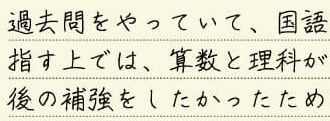 過去問をやっていて、国語
指す上では、算数と理科が
後の補強をしたかったため